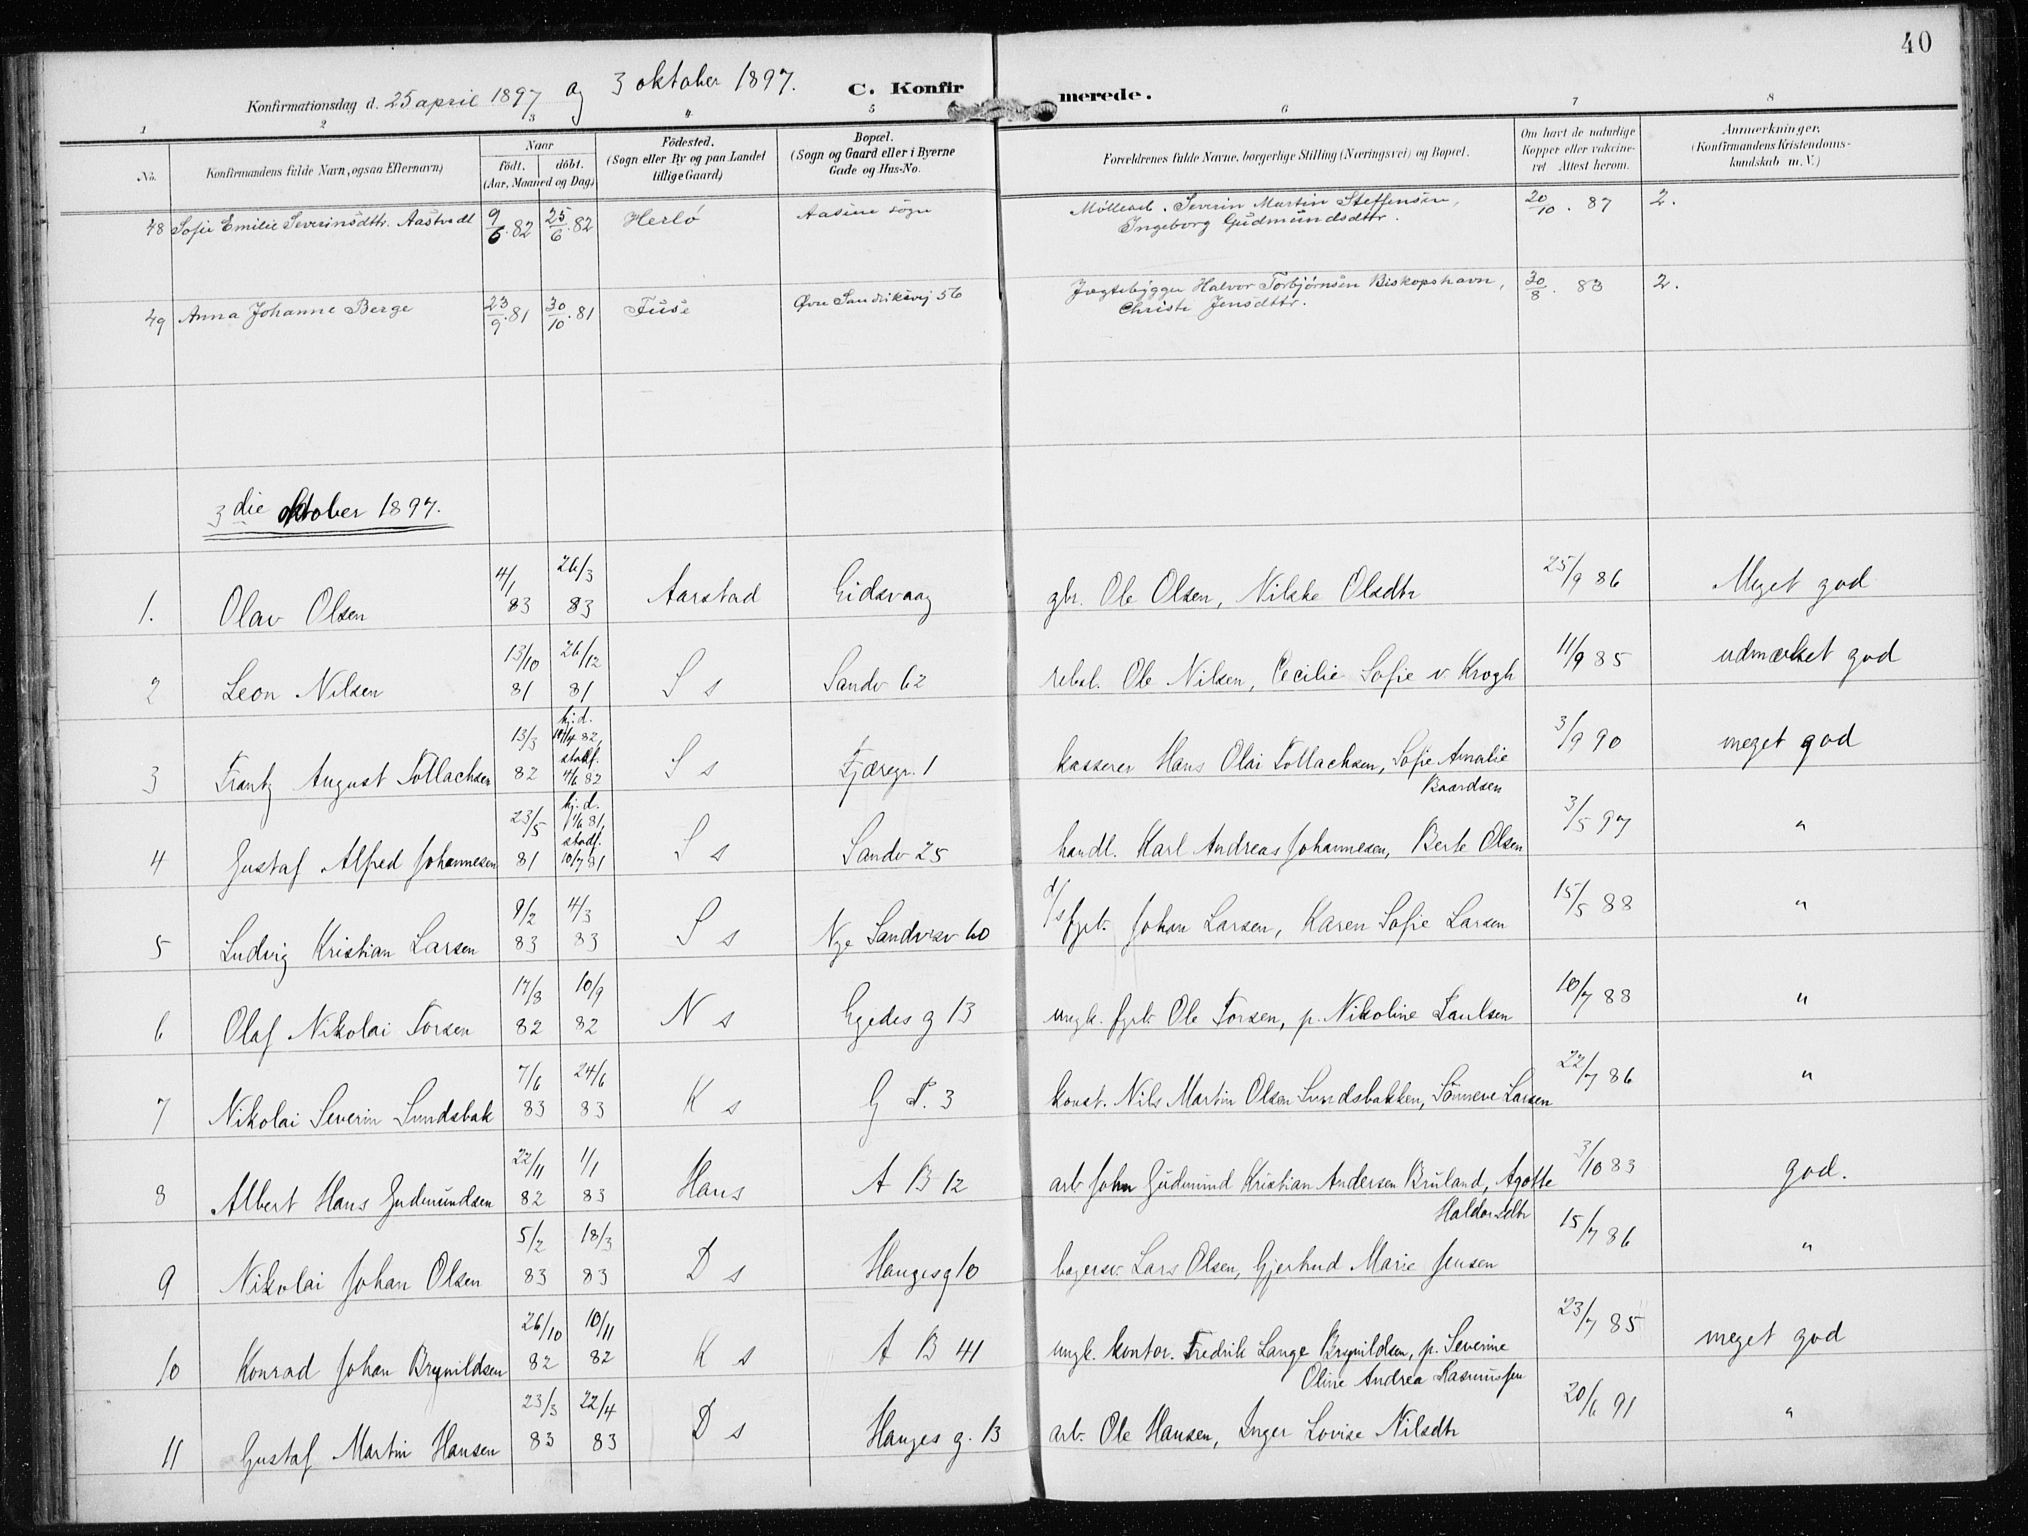 40
Konfirmationsdag d. 25 april 1897 og 3 oktober 1897. C. Konfirmerede.
1 2 3 4 5 6 7 8
No. Konfirmandens fulde Navn, ogsaa Efternavn) Naar födt. döbt. (Aar, Maaned og Dag) Födested. (Sogn eller By og paa Landet tillige Gaard) Bopæl. (Sogn og Gaard eller i Byerne Gade og Hus-No. Forældrenes fulde Navne, borgerlige Stilling (Næringsvei) og Bopæl. Om havt de naturlige Kopper eller vakcineret Attest herom. Anmærkninger. (Konfirmandens Kristendomskundskab m. V.)
48 Sofie Emilie Severinsdttr. Aastvedt 9/6.82 25/6.82 Herlø Aasene sogn Møllearb. Severin Martin Steffensen, 20/10.87 2.
Ingeborg Gudmundsdttr.
49 Anna Johanne Berge 23/9.81 30/10.81 Fuse Øvre Sandviksvej 56 Jægtebygger Halvor Torbjørnsen Biskopshavn, 30/8.83 2.
Christi Jensdttr.
3die oktober 1897.
1. Olav Olsen 4/1 83 26/3 83 Aarstad Eidsvaag gbr. Ole Olsen, Nilske Olsdtr 25/9 86 Meget god
2 Leon Nilsen 13/10 81 26/12 81 S s Sandv 62 rebsl. Ole Nilsen, Cecilie Sofie v. Krogh 11/9 85 udmærket god
3 Frantz August Tollachsen 13/3 82 hj. d. 10/4 82, stadf. 4/6 82 S s Fjæregr. 1 kasserer Hans Olai Tollachsen, Sofie Amalie 3/9 90 meget god
Baardsen
4 Gustaf Alfred Johannesen 23/5 81 hj. d. 1/6 81, stadf. 10/7 81 S s Sandv 25 handl. Karl Andreas Johannesen, Berte Olsen 3/5 97 "
5 Ludvig Kristian Larsen 9/2 83 4/3 83 S s Nye Sandvksv 60 d/s fyrb. Johan Larsen, Karen Sofie Larsen 15/5 88 "
6 Olaf Nikolai Torsen 17/8 82 10/9 82 N s Egedes g 13 ungk. fyrb. Ole Torsen, p. Nikoline Paulsen 10/7 88 "
7 Nikolai Severin Sundsbak 7/6 83 24/6 83 K s G P. 3 konst. Nils Martin Olsen Sundsbakken, Sønneve Larsen 22/7 86 "
8 Albert Hans Gudmundsen 22/11 82 1/1 83 Haus A B 12 arb John Gudmund Kristian Andersen Bruland, Agotte 3/10 83 god.
Haldorsdtr
9 Nikolai Johan Olsen 5/2 83 18/3 83 D s Haugesg 10 bagersv. Lars Olsen, Gjertrud Marie Jensen 15/7 86 "
10 Konrad Johan Brynildsen 26/10 82 10/11 82 K s A B 41 ungk. kontor. Fredrik Lange Brynildsen, p. Severine 23/7 85 meget god
Oline Andrea Rasmussen
11 Gustaf Martin Hansen 23/3 83 22/4 83 D s Hauges g. 13 arb. Ole Hansen, Inger Lovise Nilsdtr 20/6 91 "